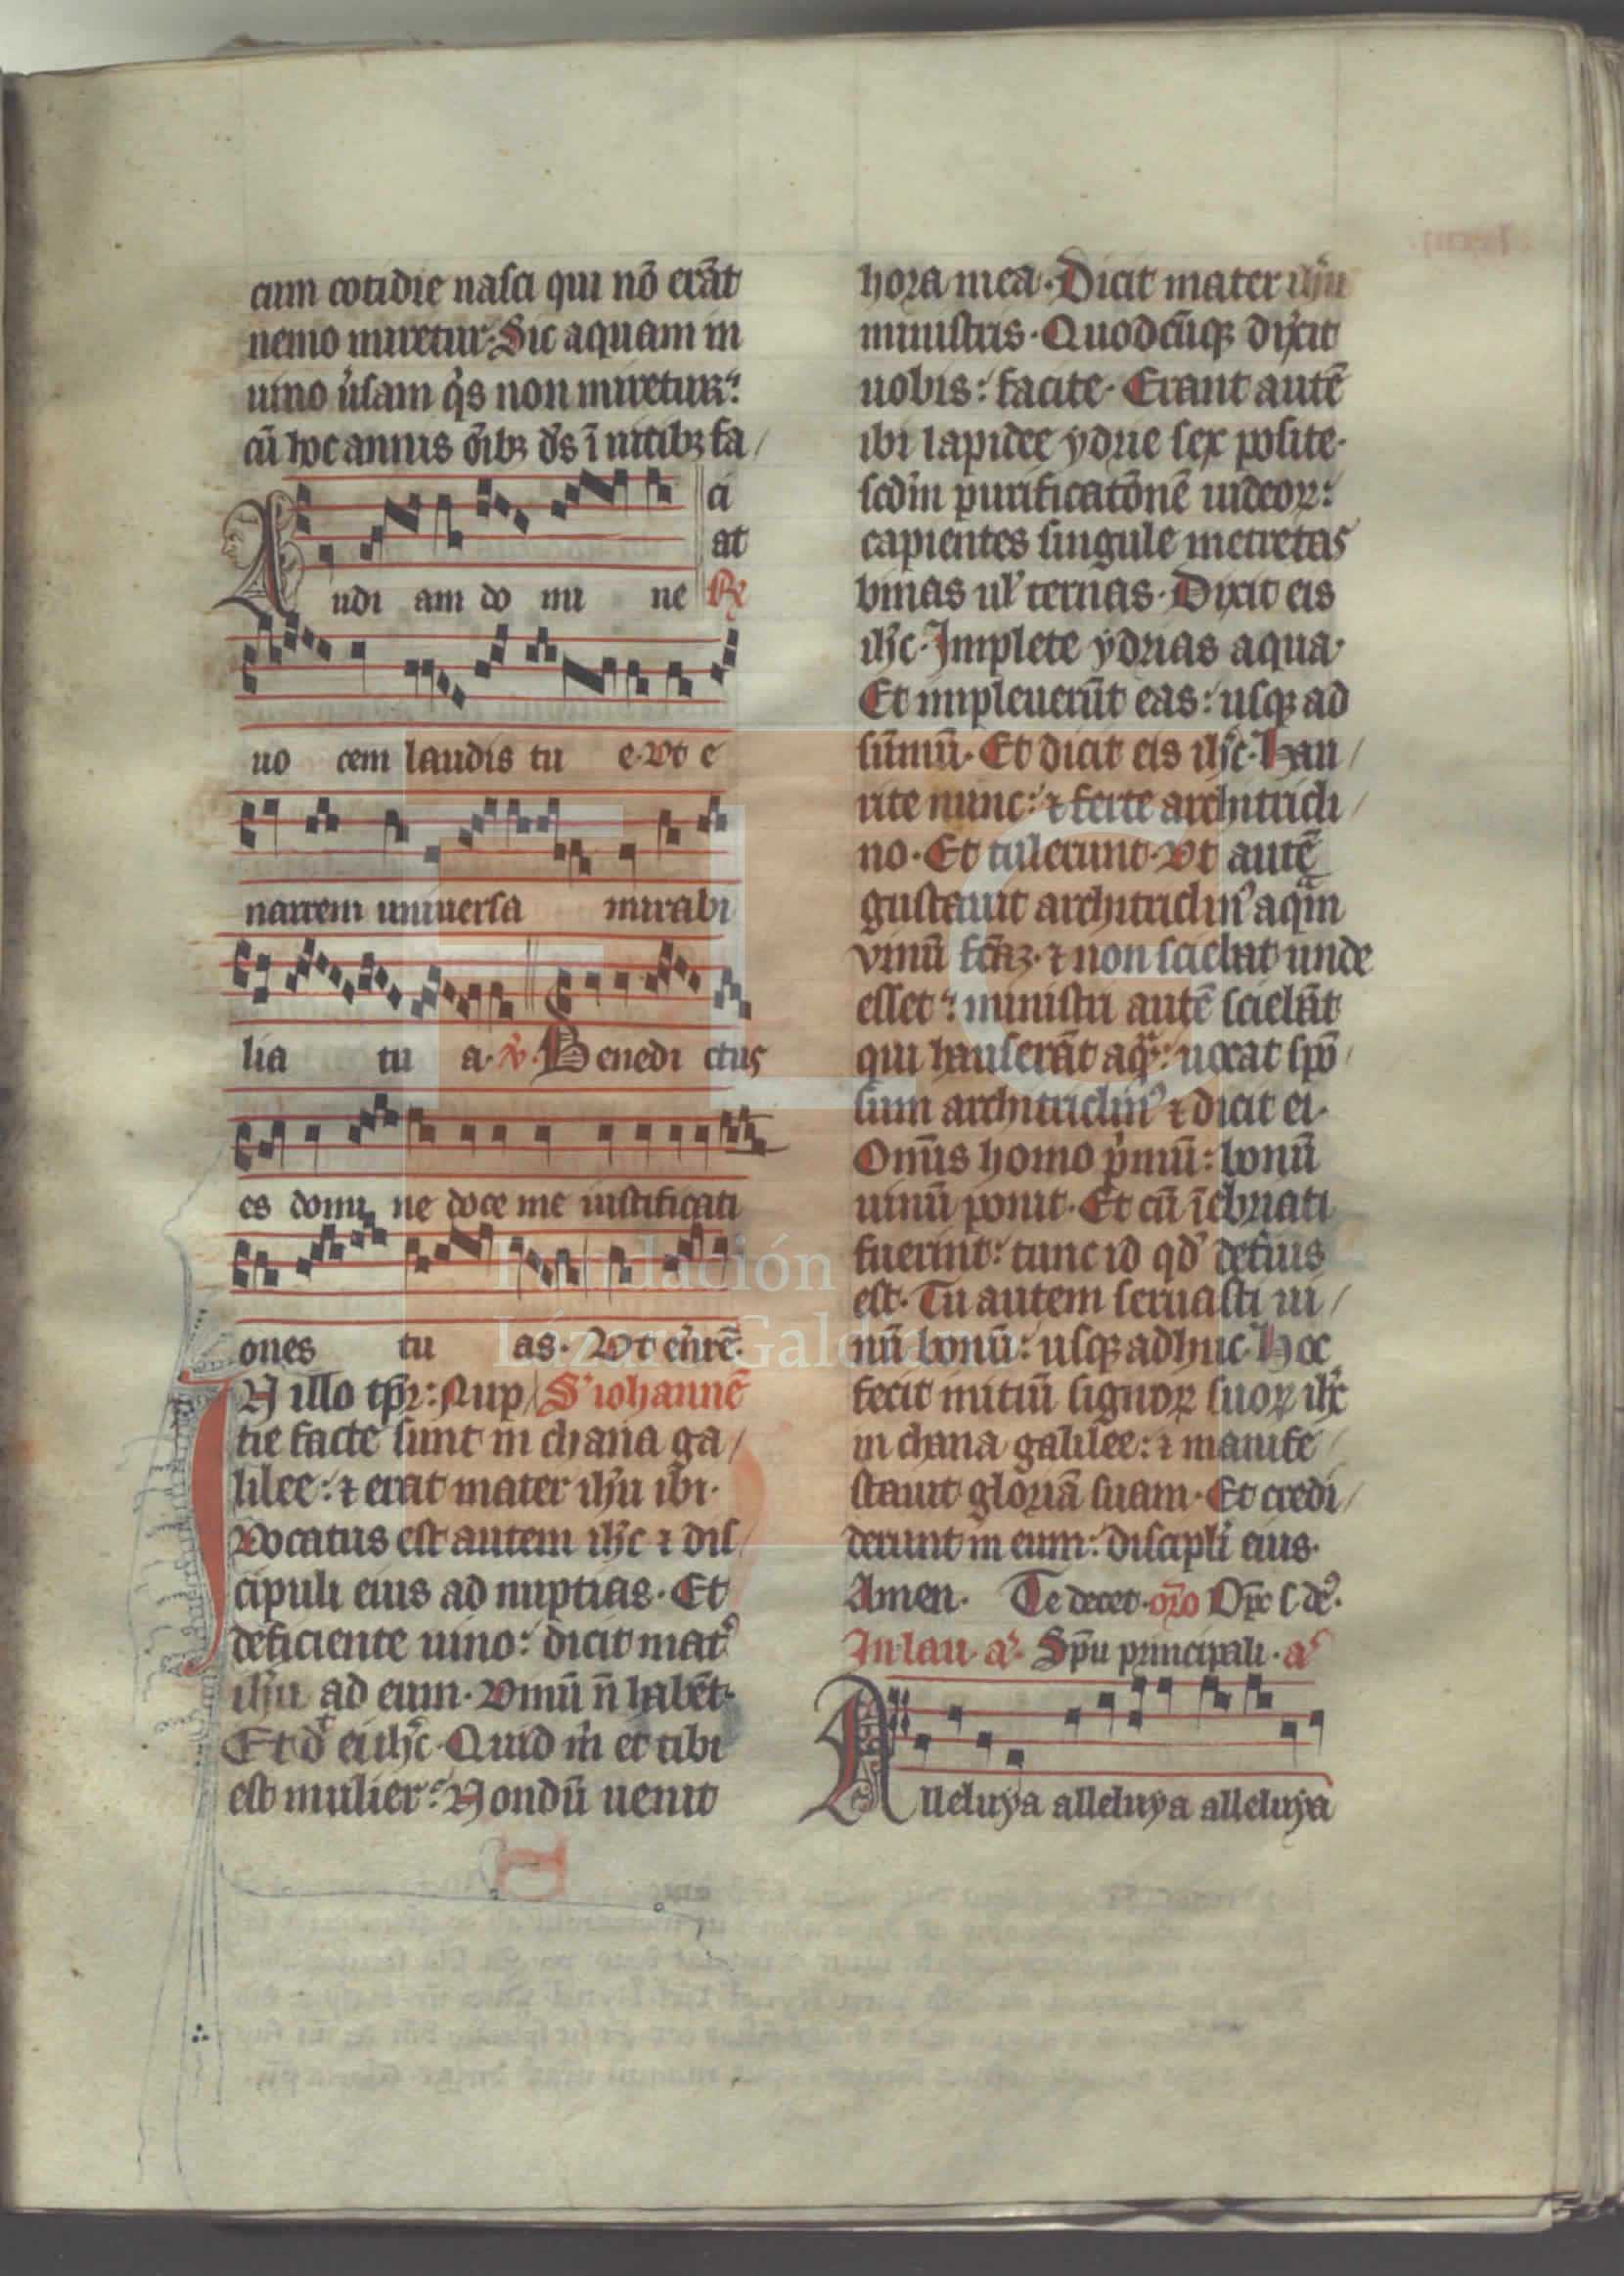 cum cotidie nasci qui nō erāt
nemo miretur. Sic aquam in
uino ūsam qͥs non miretur:
cū hoc annis oīb; dꝰs ī uitib; fa/
ci
at
Audi am do mi ne R
uo cem laudis tu e. Vt e
narrem uniuersa mirabi
lia tu a. V̉. Benedi ctus
es domi ne doce me iustificati
ones tu as. Vt enr̄ē.
IN illo tp̄r: Nup/ S' iohannē
tie facte sunt in chana ga/
lilee: ⁊ erat mater ihū ibi.
Vocatus est autem ihc̄ ⁊ dis/
cipuli eius ad nuptias. Et
deficiente uino: dicit mat̉
ihū ad eum. Vinū n̄ habēt.
Et dͭ ei ihc̄. Quid m̄ et tibi
est mulier: Nondū uenit
hora mea. Dicit mater ihū
ministris. Quodcūqꝫ dixit
uobis: facite. Erant autē
ibi lapidee ydrie sex posite.
scd̄m purificatōnē iudeoꝝ:
capientes singule metretas
binas ul' ternas. Dixit eis
ihc̄. Implete ydrias aqua.
Et impleuerūt eas: usqꝫ ad
sūmū. Et dicit eis ihc̄. Hau/
rite nunc: ⁊ ferte architricli/
no. Et tulerunt. Vt autē
gustauit architriclinꝰ aqͣm
vinū fc̄aꝫ. ⁊ non sciebat unde
esset: ministri autē sciebāt
qui hauserāt aqͣ: uocat spō/
sum architriclinꝰ ⁊ dicit ei.
Om̄is homo pͥmū: bonū
uinū ponit. Et cū īebriati
fuerint: tunc id qd' deteriꝰ
est. Tu autem seruasti ui/
nū bonū: usqꝫ adhuc. Hoc
fecit initiū signoꝝ suoꝝ ihc̄
in chana galilee: ⁊ manife/
stauit gloriā suam. Et credi/
derunt in eum: discipli eius.
Amen. Te decet. or̄o Op̄s s. de'.
In lau. aͣ. Sp̄u principali. aͣ
Alleluya alleluya alleluya
FLG
Fundación
Lázaro Galdiano